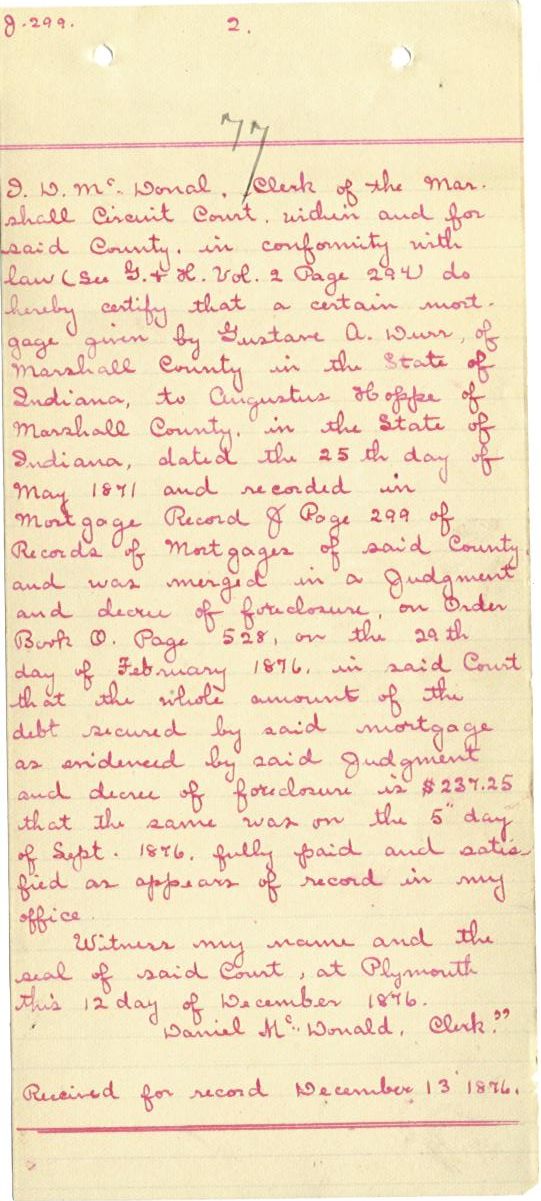 J. 299. 2.
77
I. D. Mc. Donal, Clerk of the Mar-
shall Circuit Court, within and for
said County, in conformity with
law (See G. & H. Vol. 2 Page 294) do
hereby certify that a certain mort-
gage given by Gustave A. Durr, of
Marshall County in the State of
Indiana, to Augustus Hoppe of
Marshall County, in the State of
Indiana, dated the 25th day of
May 1871 and recorded in
Mortgage Record J Page 299 of
Records of Mortgages of said County
and was merged in a Judgment
and decree of foreclosure, on Order
Book O. Page 528, on the 29th
day of February 1876, in said Court
that the whole amount of the
debt secured by said mortgage
as evidenced by said Judgment
and decree of foreclosure is $237.25
that the same was on the 5" day
of Sept. 1876, fully paid and satis-
fied as appears of record in my
office.
Witness my name and the
seal of said Court, at Plymouth
this 12 day of December 1876.
Daniel Mc. Donald, Clerk."
Received for record December 13 1876.